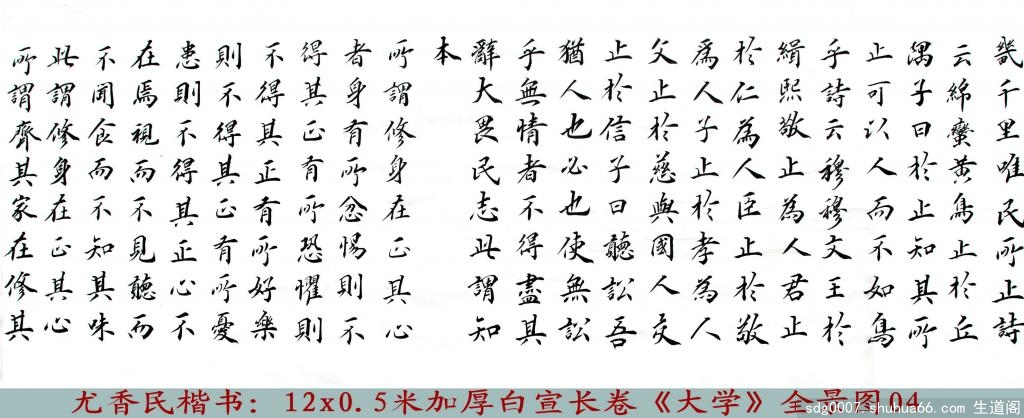 畿千里唯民所止詩
云綿蠻黃鳥止於丘
隅子曰於止知其所
止可以人而不如鳥
乎詩云穆穆文王於
緝熙敬止為人君止
於仁為人臣止於敬
爲人子止於孝為人
父止於慈與國人交
止於信子曰聽訟吾
猶人也必也使無訟
乎無情者不得盡其
辭大畏民志此謂知
本
所謂修身在正其心
者身有所忿惕則不
得其正有所恐懼則
不得其正有所好樂
則不得其正有所憂
患則不得其正心不
在焉視而不見聽而
不聞食而不知其味
此謂修身在正其心
所謂齊其家在修其
尤香民楷书：12x0.5米加厚白宣长卷《大学》全景图04
sdg0007.shuhua66.com 生道阁